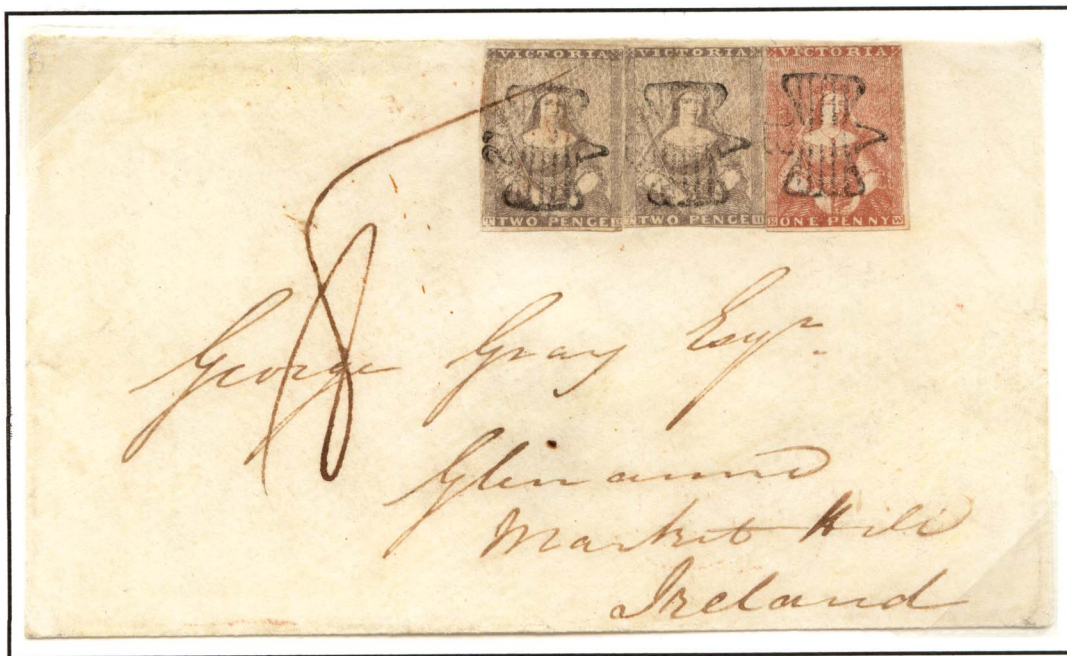 VICTORIA VICTORIA VICTORIA
TWO PENCE TWO PENCE ONE PENNY
8
George Gray Esqr.
Glenanne
Market Hill
Ireland